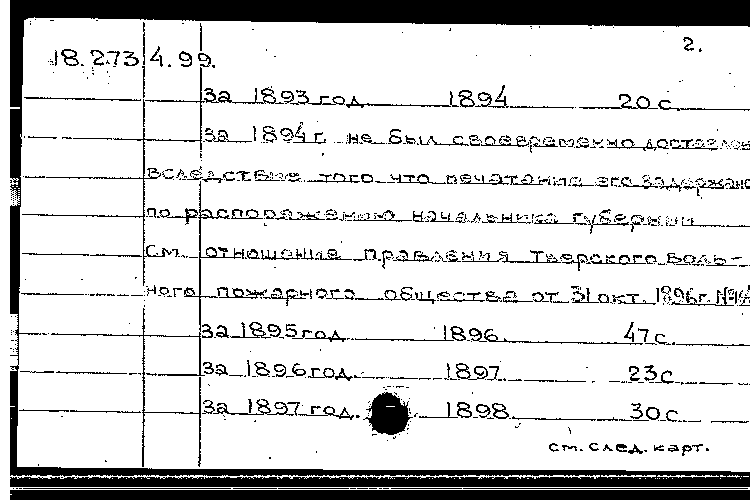 2.
18.273 4.99.
за 1893 год 1894 20 с.
за 1894 г. не был своевременно доставлен
вследствие того что печатание его задержано
по распоряжению начальника губернии
см. отношения правления Тверского воль-
ного пожарного общества от 31 окт. 1896 г.
за 1895 год 1896. 47 с.
за 1896 год. 1897. 23 с
за 1897 год. 1898. 30 с
см. след. карт.